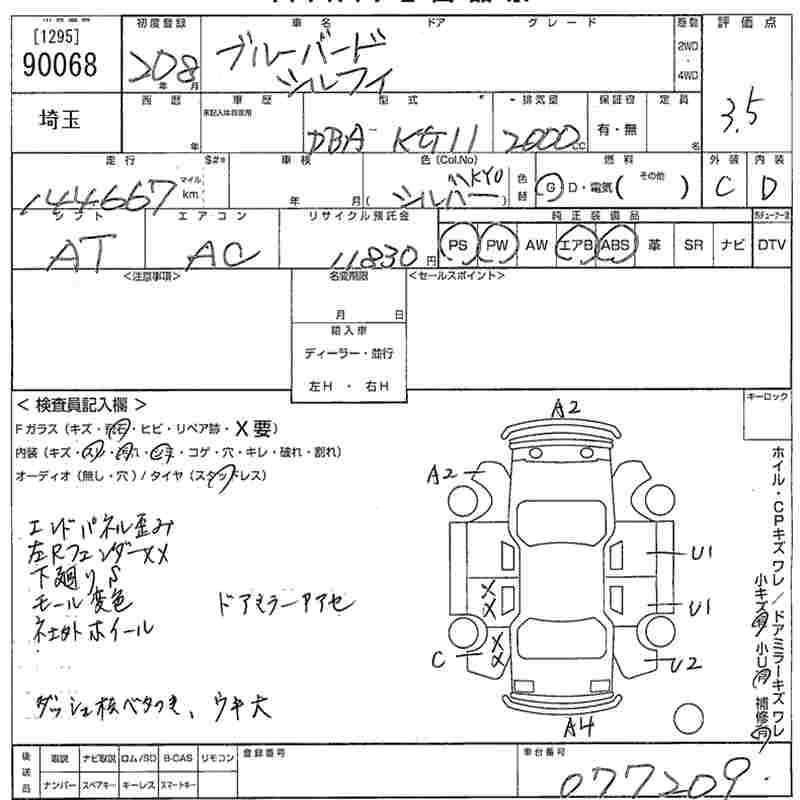 [1295]
90068
初度登録
20 8
年 月
車名
ブルーバード
シルフィ
ドア
グレード
2WD
4WD
評価点
3.5
埼玉
西暦
年
車歴
未記入は自家用
型式
DBA- KG11
排気量
2000 CC
保証書
有・無
定員
名
走行
144667
マイル
km
車検
年 月(
色(Col.No)
KY0
シルバー
色替
燃料
G D・電気( その他 )
外装
C
内装
D
シフト
AT
エアコン
AC
リサイクル預託金
11830 円
純正装備品
PS PW AW エアB ABS 革 SR ナビ DTV
<注意事項>
名変期限
月 日
輸入車
ディーラー・並行
左H ・ 右H
<セールスポイント>
<検査員記入欄>
キーロック
Fガラス(キズ・飛石・ヒビ・リペア跡・X要)
内装(キズ・スレ・汚れ・シミ・コゲ・穴・キレ・破れ・割れ)
オーディオ(無し・穴)/タイヤ(スタッドレス)
エンドパネル歪み
左Rフェンダー XX
下廻りS
モール変色
ドアミラーアアセ
社外ホイール
ダッシュ板ベタつき、ウキ大
A2
A2
U1
XX
U1
XX
C
U2
A4
ホイル・CPキズ ワレ/ドアミラーキズ ワレ
小キズ有 小U有 補修有
後送品
取説 ナビ取説 ロム/SD B-CAS リモコン
ナンバー スペアキー キーレス スマートキー
登録番号
車台番号
077209